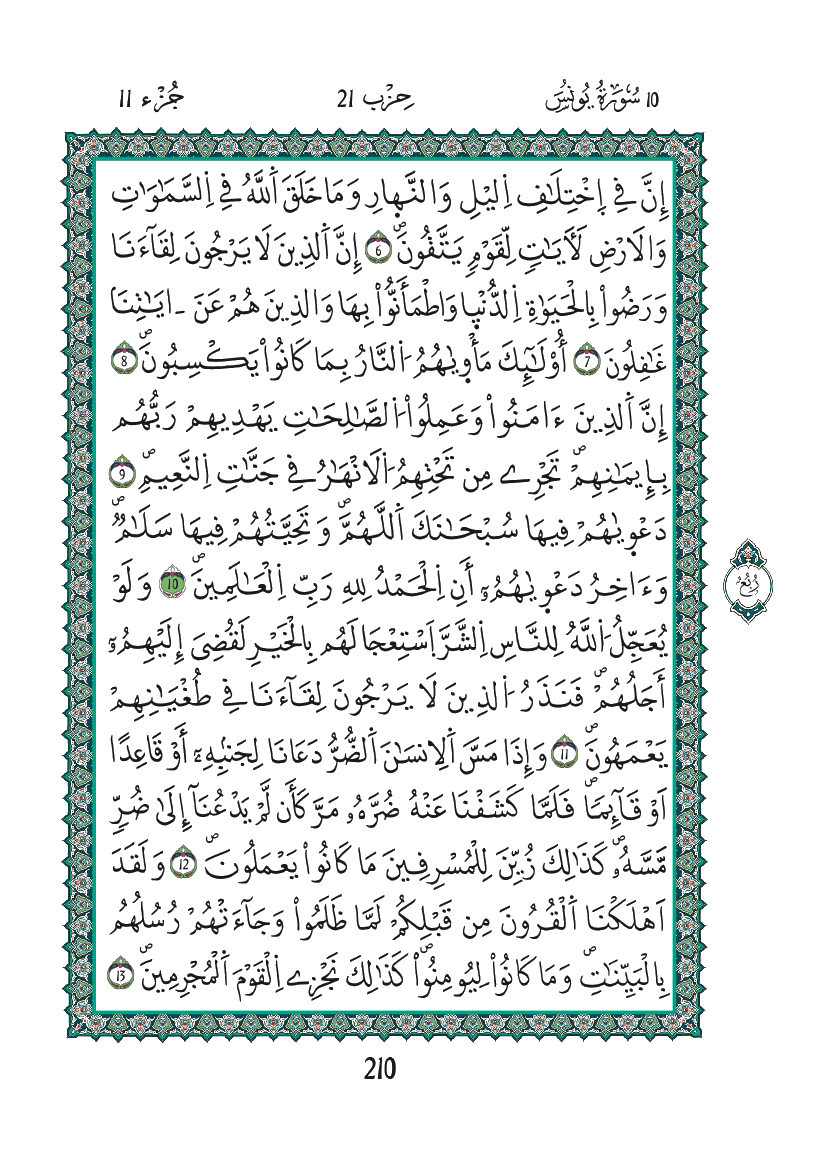 10 سُورَةُ يُونُسَ
حِزْب 21
جُزْء 11
إِنَّ فِے اِ۪خْتِلَٰفِ اِ۬ليْلِ وَالنَّه۪ارِ وَمَا خَلَقَ اَ۬للَّهُ فِے اِ۬لسَّمَٰوَٰتِ
وَالَارْضِ لَأٓيَٰتٖ لِّقَوْمٖ يَتَّقُونَۖ 6 إِنَّ اَ۬لذِينَ لَا يَرْجُونَ لِقَآءَنَا
وَرَضُواْ بِالْحَيَوٰةِ اِ۬لدُّنْي۪ا وَاطْمَأَنُّواْ بِهَا وَالذِينَ هُمْ عَنَ اٰيَٰتِنَا
غَٰفِلُونَ 7 أُوْلَٰٓئِكَ مَأْو۪يٰهُمُ اُ۬لنَّارُ بِمَا كَانُواْ يَكْسِبُونَۖ 8
إِنَّ اَ۬لذِينَ ءَامَنُواْ وَعَمِلُواْ اُ۬لصَّٰلِحَٰتِ يَهْدِيهِمْ رَبُّهُم
بِإِيمَٰنِهِمْۖ تَجْرِے مِن تَحْتِهِمُ اُ۬لَانْهَٰرُ فِے جَنَّٰتِ اِ۬لنَّعِيمِۖ 9
دَعْو۪يٰهُمْ فِيهَا سُبْحَٰنَكَ اَ۬للَّهُمَّۖ وَتَحِيَّتُهُمْ فِيهَا سَلَٰمٞۖ
وَءَاخِرُ دَعْو۪يٰهُمُۥٓ أَنِ اِ۬لْحَمْدُ لِلهِ رَبِّ اِ۬لْعَٰلَمِينَۖ 10 وَلَوْ
رُبُع
يُعَجِّلُ اُ۬للَّهُ لِلنَّاسِ اِ۬لشَّرَّ اَ۪سْتِعْجَالَهُم بِالْخَيْرِ لَقُضِيَ إِلَيْهِمُۥٓ
أَجَلُهُمْۖ فَنَذَرُ اُ۬لذِينَ لَا يَرْجُونَ لِقَآءَنَا فِے طُغْيَٰنِهِمْ
يَعْمَهُونَۖ 11 وَإِذَا مَسَّ اَ۬لِانسَٰنَ اَ۬لضُّرُّ دَعَانَا لِجَنۢبِهِۦٓ أَوْ قَاعِدًا
اَوْ قَآئِمٗاۖ فَلَمَّا كَشَفْنَا عَنْهُ ضُرَّهُۥ مَرَّ كَأَن لَّمْ يَدْعُنَآ إِلَىٰ ضُرّٖ
مَّسَّهُۥۖ كَذَٰلِكَ زُيِّنَ لِلْمُسْرِفِينَ مَا كَانُواْ يَعْمَلُونَۖ 12 وَلَقَدَ
اَهْلَكْنَا اَ۬لْقُرُونَ مِن قَبْلِكُمْ لَمَّا ظَلَمُواْ وَجَآءَتْهُمْ رُسُلُهُم
بِالْبَيِّنَٰتِۖ وَمَا كَانُواْ لِيُومِنُواْۖ كَذَٰلِكَ نَجْزِے اِ۬لْقَوْمَ اَ۬لْمُجْرِمِينَۖ 13
210